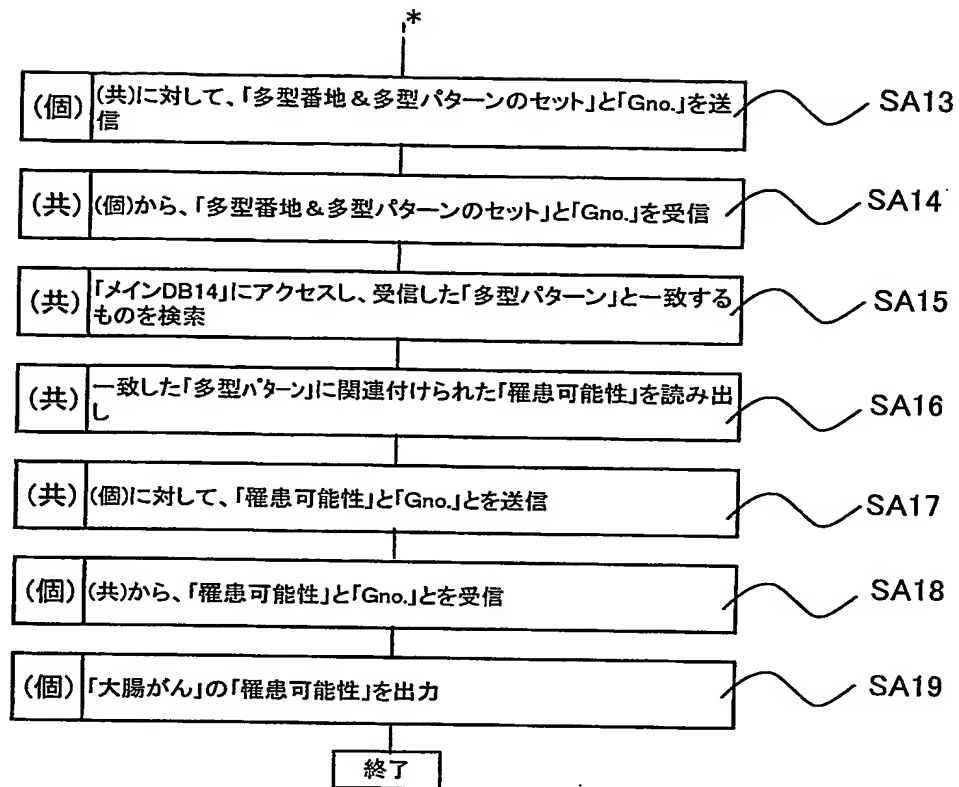 *
(個) (共)に対して、「多型番地&多型パターンのセット」と「Gno.」を送
信
SA13
(共) (個)から、「多型番地&多型パターンのセット」と「Gno.」を受信
SA14
(共) 「メインDB14」にアクセスし、受信した「多型パターン」と一致する
ものを検索
SA15
(共) 一致した「多型パターン」に関連付けられた「罹患可能性」を読み出
し
SA16
(共) (個)に対して、「罹患可能性」と「Gno.」とを送信
SA17
(個) (共)から、「罹患可能性」と「Gno.」とを受信
SA18
(個) 「大腸がん」の「罹患可能性」を出力
SA19
終了